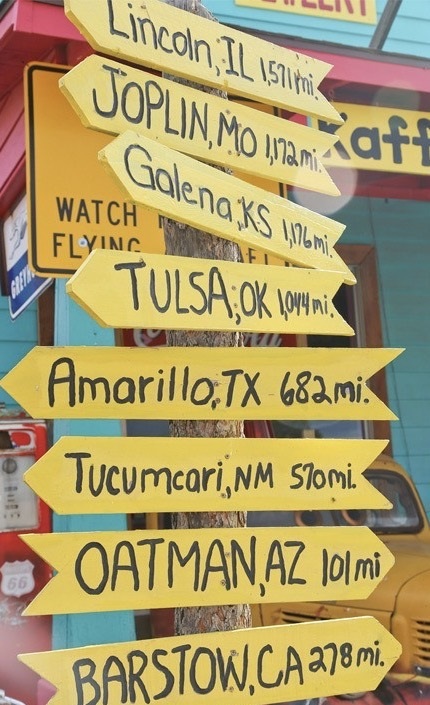 Lincoln, IL 1,571 mi.
JOPLIN, MO 1,172 mi.
Kaff
Galena, KS 1,176 mi.
WATCH
FLYING
TULSA, OK 1,044 mi.
Amarillo, TX 682 mi.
Tucumcari, NM 570 mi.
OATMAN, AZ 101 mi
66
BARSTOW, CA 278 mi.